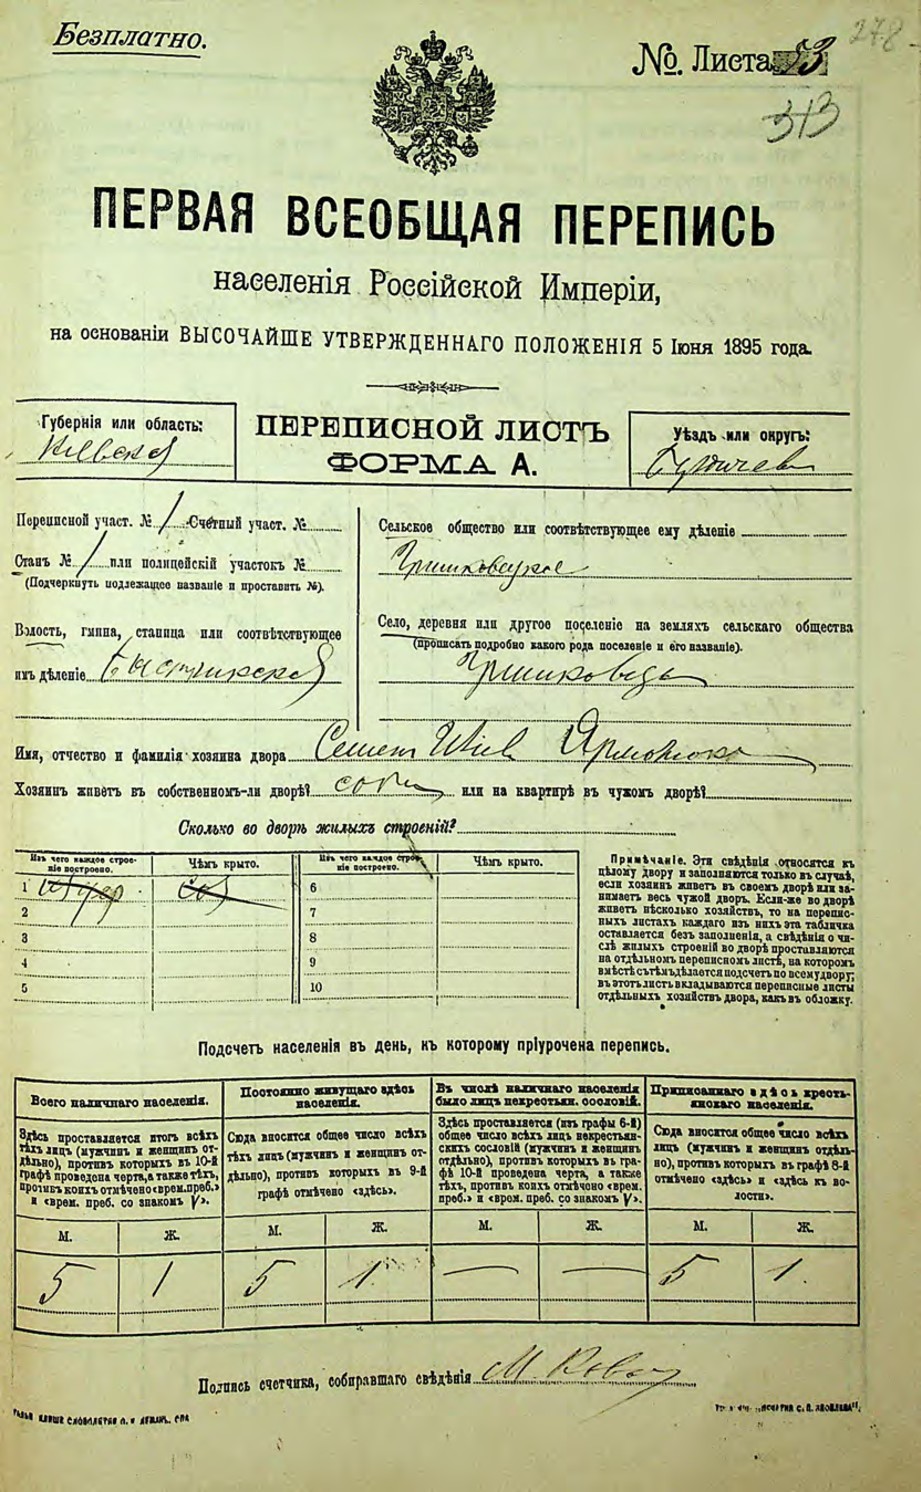 Безплатно.
№ Листа 53
278
313
ПЕРВАЯ ВСЕОБЩАЯ ПЕРЕПИСЬ
населенія Россійской Имперіи,
на основаніи ВЫСОЧАЙШЕ УТВЕРЖДЕННАГО ПОЛОЖЕНІЯ 5 Іюня 1895 года.
Губернія или область:
Киевская
ПЕРЕПИСНОЙ ЛИСТЪ
ФОРМА А.
Уѣздъ или округъ:
Бердичев
Переписной участ. № 1 Счётный участ. №
Станъ № 1 или полицейскій участокъ №
(Подчеркнуть подлежащее названіе и проставить №).
Волость, гмина, станица или соотвѣтствующее
имъ дѣленіе Быстрикская
Сельское общество или соотвѣтствующее ему дѣленіе
Гришковецкое
Село, деревня или другое поселеніе на земляхъ сельскаго общества
(прописать подробно какого рода поселеніе и его названіе).
Гришковцы
Имя, отчество и фамилія хозяина двора Семен
Хозяинъ живетъ въ собственномъ-ли дворѣ? или на квартирѣ въ чужомъ дворѣ?
Сколько во дворѣ жилыхъ строеній?
Изъ чего каждое строе-
ніе построено.
Чѣмъ крыто.
Изъ чего каждое стро-
ніе построено.
Чѣмъ крыто.
1
2
3
4
5
6
7
8
9
10
Примѣчаніе. Эти свѣдѣнія относятся къ
цѣлому двору и заполняются только въ случаѣ,
если хозяинъ живетъ въ своемъ дворѣ или за-
нимаетъ весь чужой дворъ. Если-же во дворѣ
живетъ нѣсколько хозяйствъ, то на перепис-
ныхъ листахъ каждаго изъ нихъ эта табличка
оставляется безъ заполненія, а свѣдѣнія о чи-
слѣ жилыхъ строеній во дворѣ проставляются
на отдѣльномъ переписномъ листѣ, на которомъ
вмѣстѣ съ тѣмъ дѣлается подсчетъ по всему двору;
въ этотъ листъ вкладываются переписные листы
отдѣльныхъ хозяйствъ двора, какъ въ обложку.
Подсчетъ населенія въ день, къ которому пріурочена перепись.
Всего наличнаго населенія.
Здѣсь проставляется итогъ всѣхъ
тѣхъ лицъ (мужчинъ и женщинъ от-
дѣльно), противъ которыхъ въ 10-й
графѣ проведена черта, а также тѣхъ,
противъ коихъ отмѣчено «врем. преб.»
и «врем. преб. со знакомъ V».
М. Ж.
5 1
Постоянно живущаго здѣсь
населенія.
Сюда вносится общее число всѣхъ
тѣхъ лицъ (мужчинъ и женщинъ от-
дѣльно), противъ которыхъ въ 9-й
графѣ отмѣчено «здѣсь».
М. Ж.
5 1
Въ числѣ наличнаго населенія
было лицъ некрестьян. сословій.
Здѣсь проставляется (изъ графы 6-й)
общее число всѣхъ лицъ некрестьян-
скихъ сословій (мужчинъ и женщинъ
отдѣльно), противъ которыхъ въ гра-
фѣ 10-й проведена черта, а также
тѣхъ, противъ коихъ отмѣчено «врем.
преб.» и «врем. преб. со знакомъ V».
М. Ж.
— —
Приписаннаго здѣсь кресть-
янскаго населенія.
Сюда вносится общее число всѣхъ
лицъ (мужчинъ и женщинъ отдѣль-
но), противъ которыхъ въ графѣ 8-й
отмѣчено «здѣсь» и «здѣсь въ во-
лости».
М. Ж.
5 1
Подпись счетчика, собиравшаго свѣдѣнія